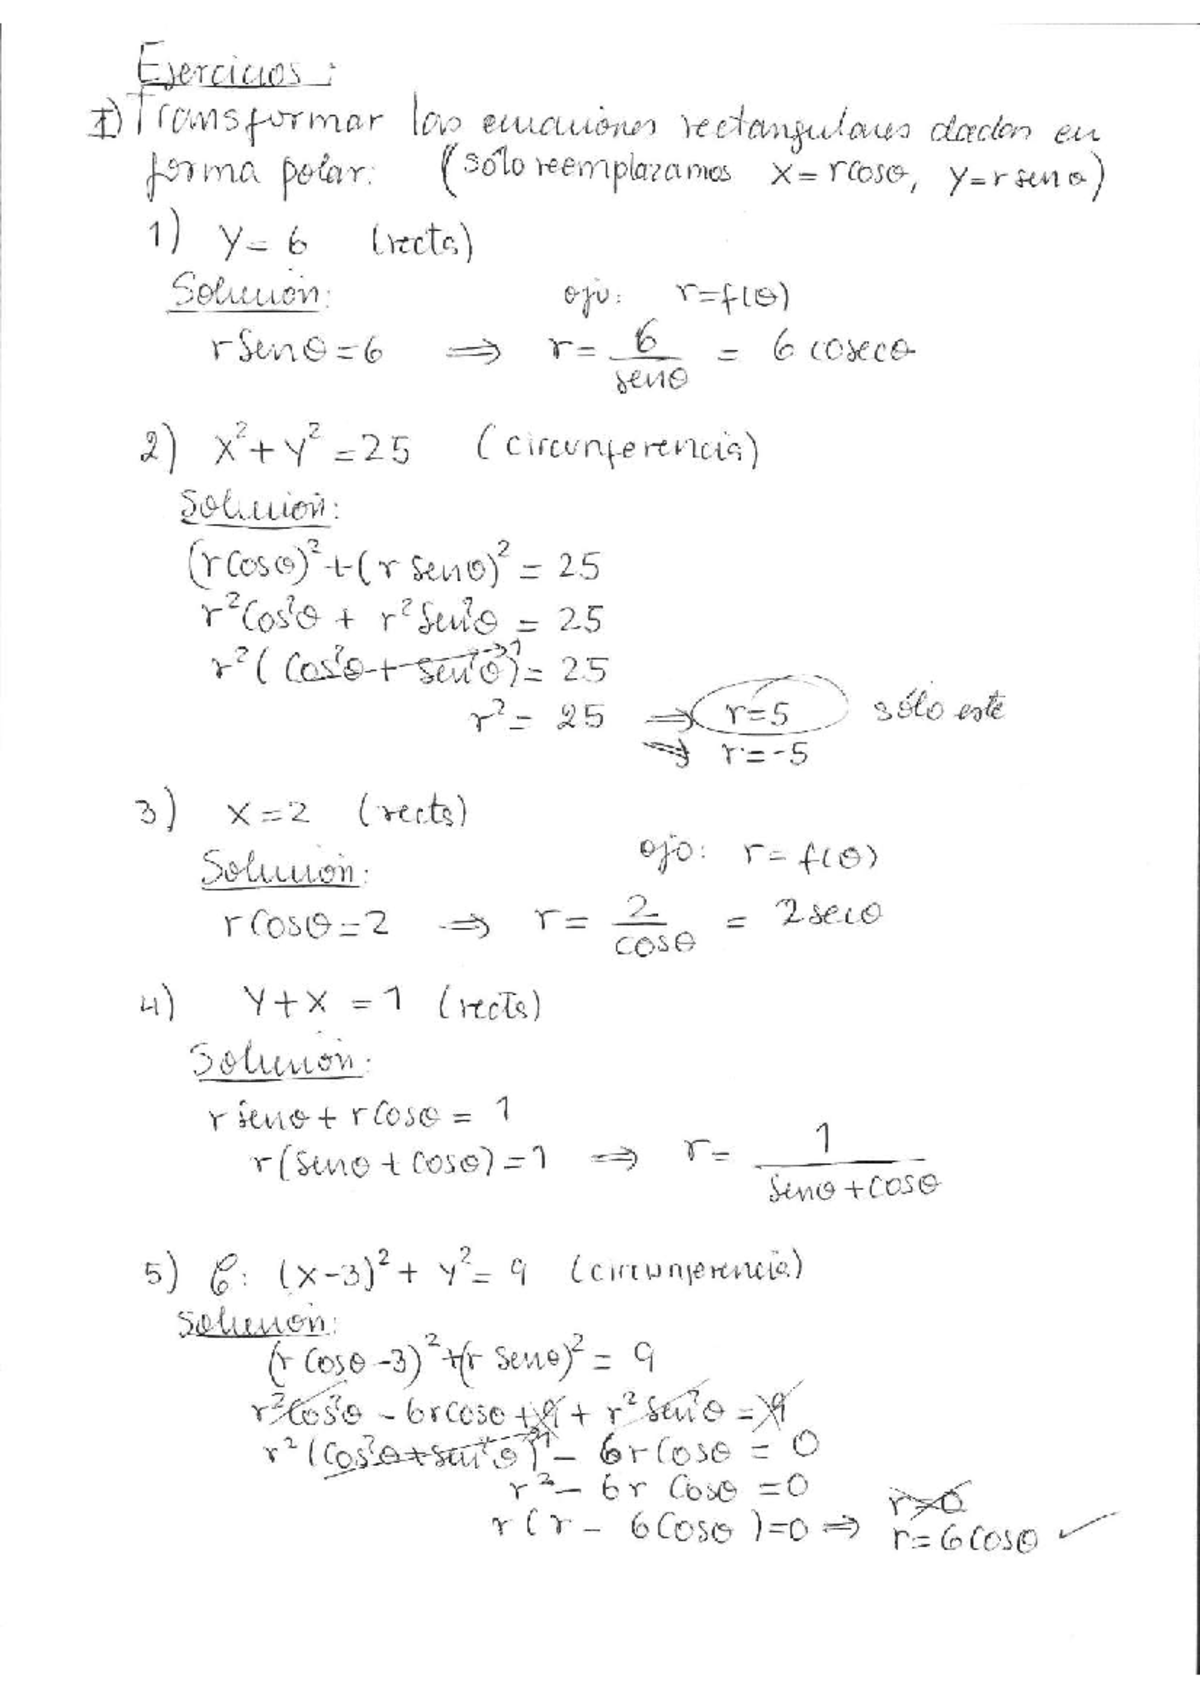 Ejercicios:
I) Transformar las ecuaciones rectangulares dadas en
forma polar: (sólo reemplazamos x=rcosθ, y=r senθ)
1) y=6 (recta)
Solución: ojo: r=f(θ)
rSenθ=6 ⇒ r= 6/senθ = 6 cosecθ
2) x²+y²=25 (circunferencia)
Solución:
(rCosθ)²+(r senθ)²=25
r²Cos²θ + r²Sen²θ = 25
r²(Cos²θ+sen²θ)¹=25
r²=25 ⇒ r=5 sólo este
⇒ r=-5
3) x=2 (recta)
Solución: ojo: r=f(θ)
rCosθ=2 ⇒ r= 2/cosθ = 2secθ
4) y+x=1 (recta)
Solución:
r senθ+rCosθ=1
r(Senθ+Cosθ)=1 ⇒ r= 1/(Senθ+cosθ)
5) C: (x-3)²+y²=9 (circunferencia)
Solución:
(r Cosθ-3)²+(r senθ)²=9
r²Cos²θ-6rcosθ+9+r²Sen²θ=9
r²(Cos²θ+sen²θ)¹-6rCosθ=0
r²-6r Cosθ=0
r(r-6Cosθ)=0 ⇒ r=0
r=6Cosθ ✓